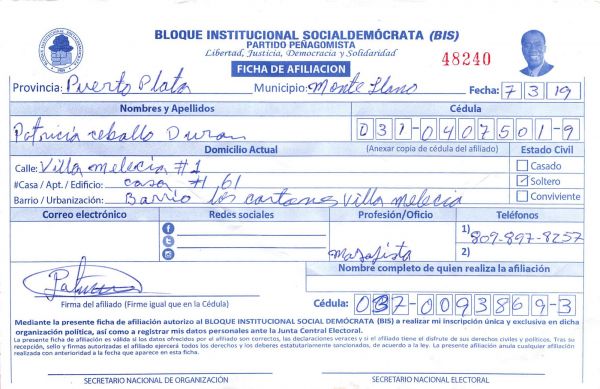 BLOQUE INSTITUCIONAL SOCIALDEMÓCRATA (BIS)
PARTIDO PEÑAGOMISTA
Libertad, Justicia, Democracia y Solidaridad
48240
FICHA DE AFILIACION
Provincia: Puerto Plata Municipio: Monte Llano Fecha: 7 3 19
Nombres y Apellidos Cédula
Patricia ceballo Duran 031-0407501-9
Domicilio Actual (Anexar copia de cédula del afiliado) Estado Civil
Calle: Villa melecia #1 Casado
#Casa / Apt. / Edificio: casa # 61 Soltero
Barrio / Urbanización: Barrio los cartones Villa melecia Conviviente
Correo electrónico Redes sociales Profesión/Oficio Teléfonos
1) 809-897-8257
Masajista 2)
Nombre completo de quien realiza la afiliación
Firma del afiliado (Firme igual que en la Cédula) Cédula: 037-0093869-3
Mediante la presente ficha de afiliación autorizo al BLOQUE INSTITUCIONAL SOCIAL DEMÓCRATA (BIS) a realizar mi inscripción única y exclusiva en dicha
organización política, así como a registrar mis datos personales ante la Junta Central Electoral.
La presente ficha de afiliación es válida si los datos ofrecidos por el afiliado son correctos, las declaraciones veraces y si el afiliado tiene el disfrute de sus derechos civiles y políticos. Tras su
recepción, sello y firmas autorizadas el afiliado ejercerá todos los derechos y los deberes estatutariamente sancionados, de acuerdo a la ley. La presente afiliación anula cualquier afiliación
realizada con anterioridad a la fecha que aparece en esta ficha.
SECRETARIO NACIONAL DE ORGANIZACIÓN SECRETARIO NACIONAL ELECTORAL